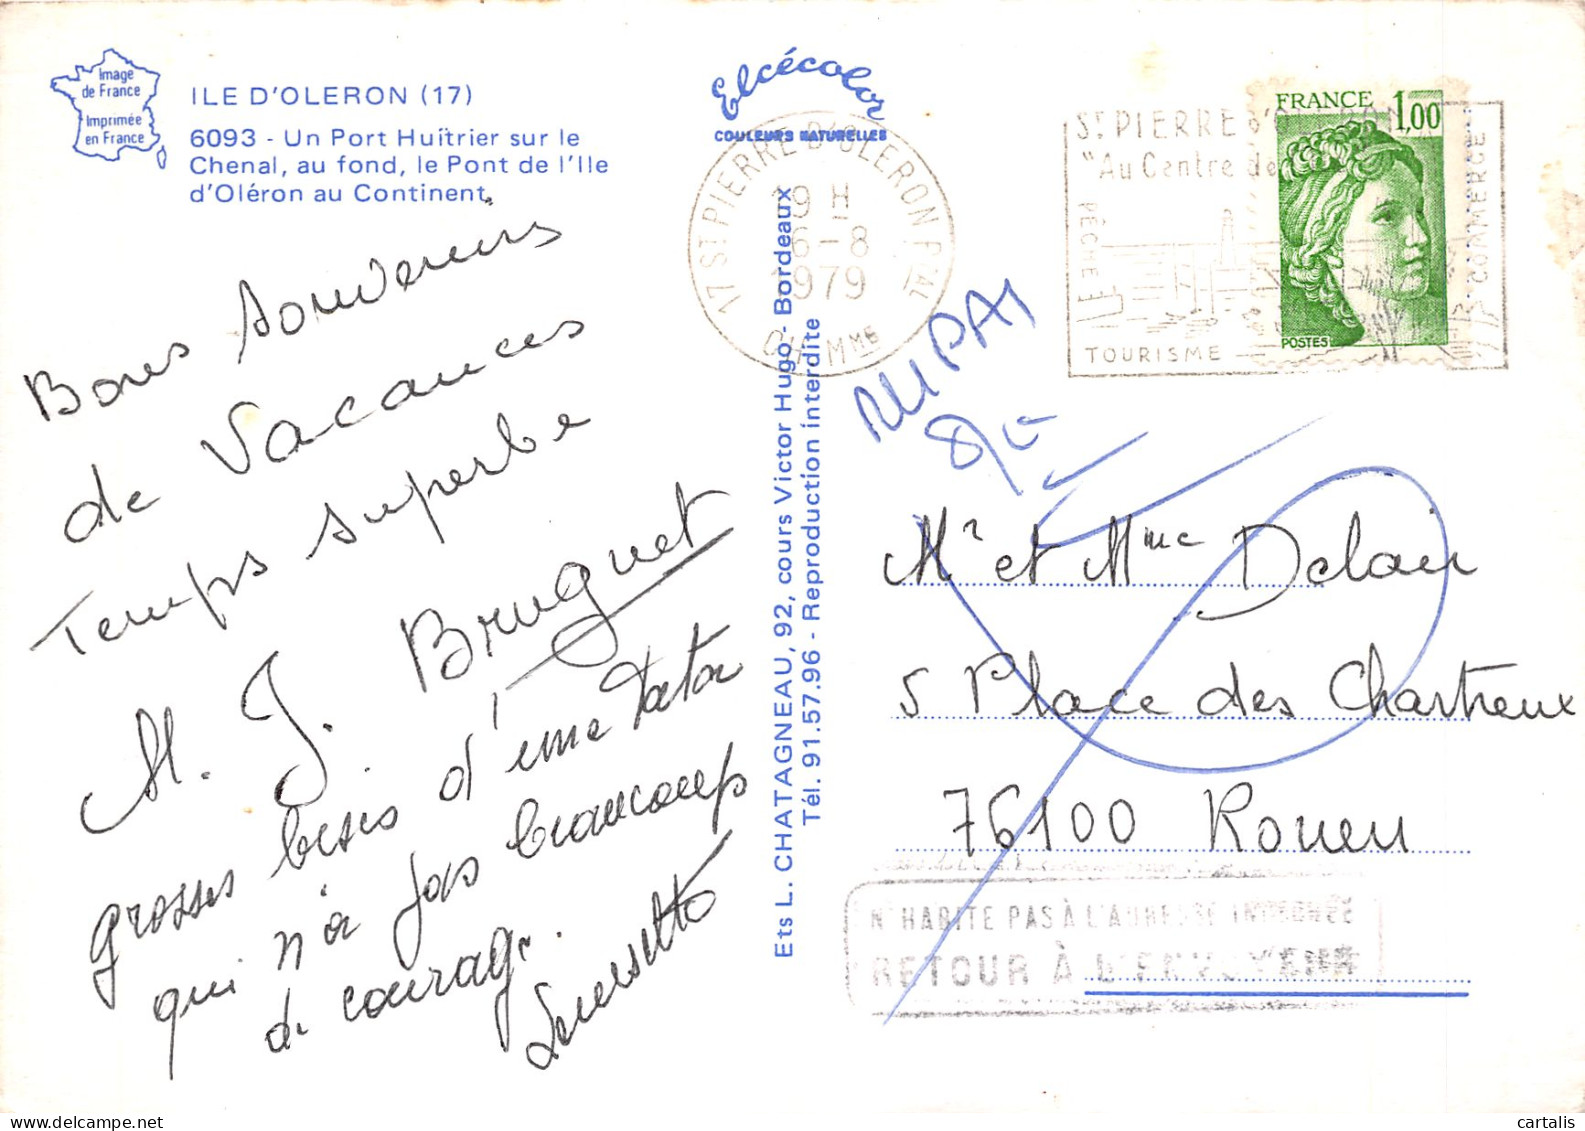 Image
de France
Imprimée
en France
ILE D'OLERON (17)
6093 - Un Port Huîtrier sur le
Chenal, au fond, le Pont de l'Ile
d'Oléron au Continent.
Bons Souvenirs
de Vacances
Temps superbe
M. J. Bruguet
grosses bises d'une tatan
qui n'a pas beaucoup
de courage.
Elcécolor
COULEURS NATURELLES
Ets L. CHATAGNEAU, 92, cours Victor Hugo - Bordeaux
Tél. 91.57.96 - Reproduction interdite
17 ST PIERRE D'OLERON PAL
19 H
6-8
1979
CH. MME
ST PIERRE D'OLERON
"Au Centre de
PÊCHE
TOURISME
COMMERCE
FRANCE 1,00
POSTES
Mr et Mme Delair
5 Place des Chartreux
76100 Rouen
N'HABITE PAS À L'ADRESSE INDIQUÉE
RETOUR À L'ENVOYEUR
cartalis